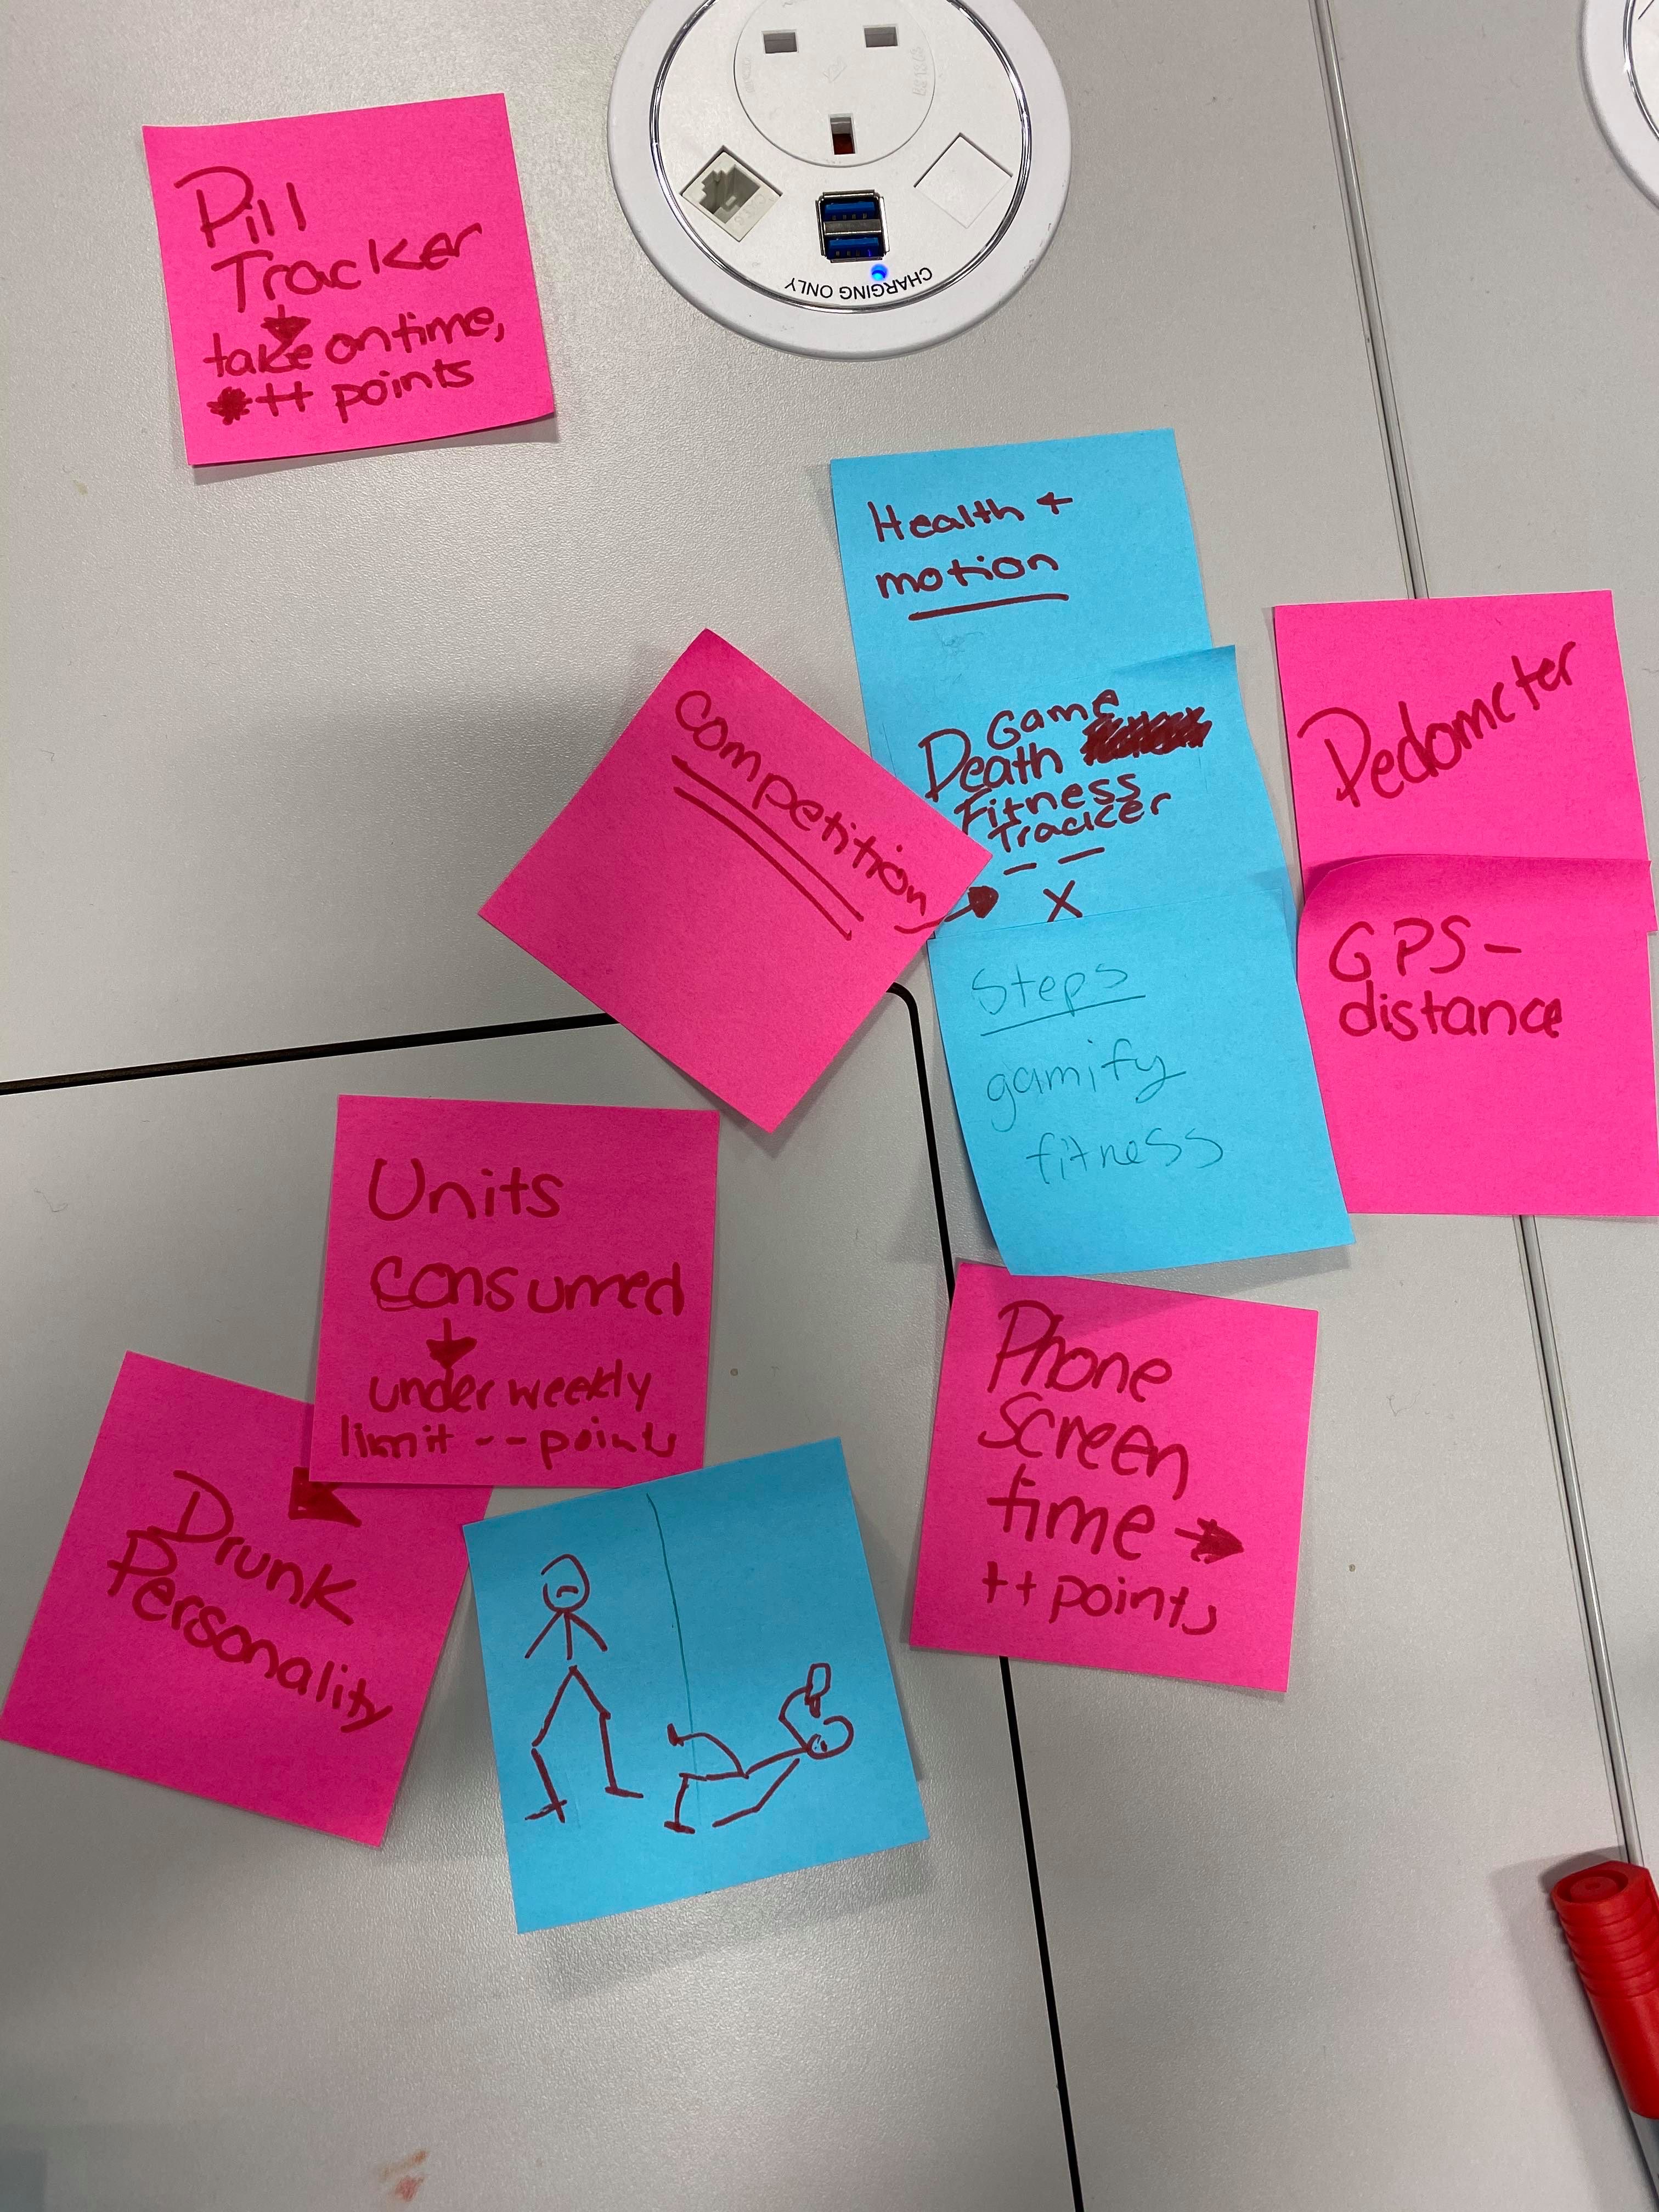 Pill
Tracker
take on time,
++ points
CHARGING ONLY
Health +
motion
Game
Death
Fitness
Tracker
X
competition
Pedometer
GPS-
distance
Steps
gamify
fitness
Units
consumed
under weekly
limit -- points
Drunk
Personality
Phone
Screen
time →
++ points